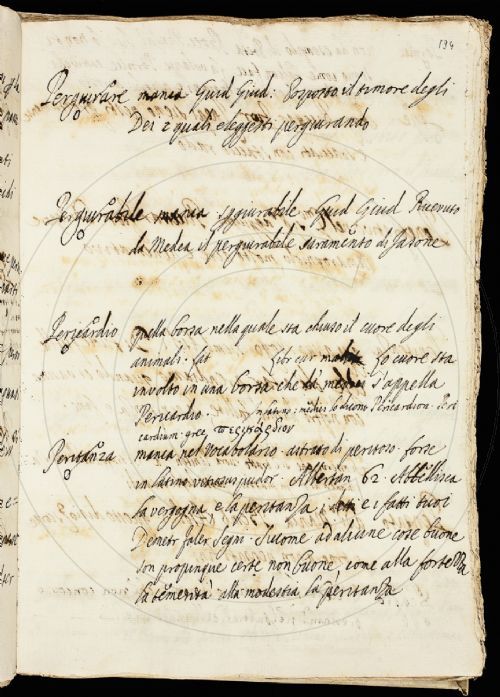 194
Pergiurare manca Guid Giud: Posposto il timore degli
Dei i quali elegesti pergiurando
Pergiurabile manca spgiurabile Guid Giud Ricevuto
da Medea il pergiurabile suramento di Jasone
Pericardio quella borsa nella quale sta chiuso il cuore degli
animali. libr cur lo cuore sta
involto in una borsa che s'appella
Pericardio. In latino: medici lo dicono Pericardion. Peri
cardium. grec περικαρδιον
Peritanza manca nel Vocabolario astratto di peritoso. forse
in latino pudor. Albertan 62. Abbellisca
la vergogna e la peritanza, e i fatti tuoi
Demetr Faler Segni. Sicome ad alcune cose buone
son propinque certe non buone, come alla fortezza
la temerità alla modestia la peritanza